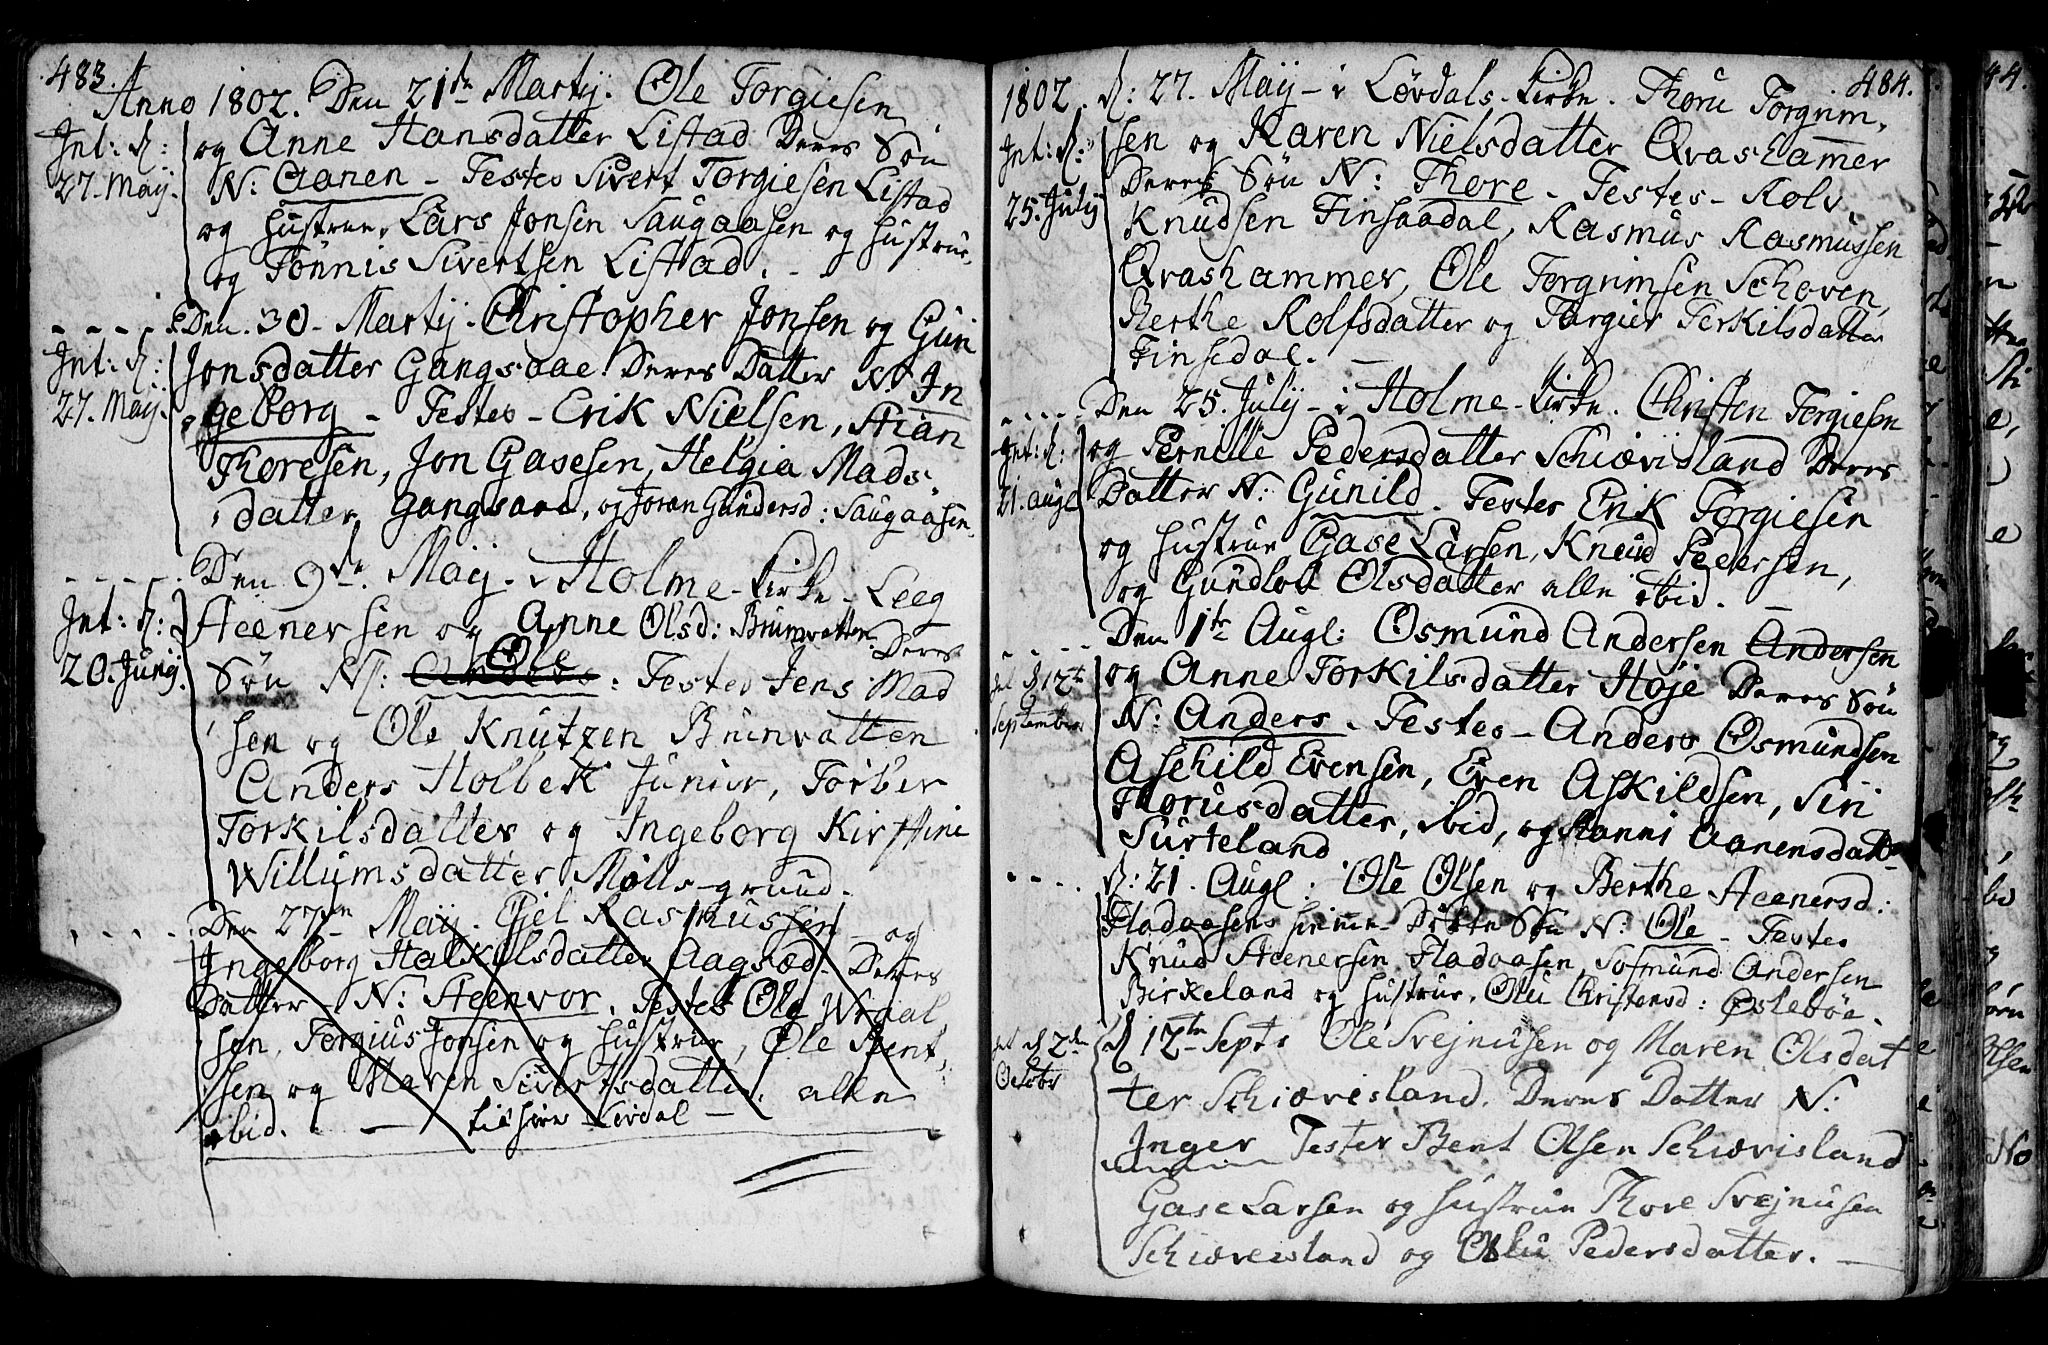 483.
Anno 1802. Den 21de Martij. Ole Torgiesen
Int: d: 27. Maij.
og Anne Hansdatter Listad Deres Søn
N: Aanen - Testes Sivert Torgiesen Listad
og Hustrue, Lars Jonsen Saugaasen og Hustrue,
og Tønnis Sivertsen Listad. -
Den 30 - Martij. Christopher Jonsen og Guri
Int: d: 27. Maij.
Jonsdatter Gangsaae Deres Datter N In
geborg - Testes - Erik Nielsen, Stian
Thoresen, Jon Gasesen, Helgia Mads
datter Gangsaae, og Joran Gundersd: Saugaasen
Den 9de Maij - i Holme - Kirke - Leeg
Int: d: 20. Junij.
Steenersen og Anne Olsd: Brunvatten Deres
Søn N: Anders Ole: Testes Jens Mad
sen og Ole Knutzen Brunvatten
Anders Holbek Junior, Torber
Torkilsdatter og Ingeborg Kirstine
Willumsdatter Molls-gruud.
Den 27en Maij. Giel Rasmussen - og
Ingeborg Halkilsdatter Aagsæd - Deres
Datter - N: Steenvor, Testes Ole Wraal
sen, Torgius Jonsen og Hustrue, Ole Bent,
sen og Maren Sivertsdatter. alle
ibid. - tilhøre Løvdal -
484.
1802. d: 27. Maij - i Løvdals - Kirke. Thoru Torgrim,
Int: d: 25. July
sen og Karen Nielsdatter Qvashammer
Deres Søn N: Thore - Testes - Rolv
Knudsen Finsaadal, Rasmus Rasmussen
Qvashammer, Ole Torgrimsen Schoven,
Berthe Rolfsdatter og Torgier Terkilsdatter
Finsedal. -
Den 25. July - i Holme - Kirke. Christen Torgiesen
Int: d: 21. Augl
og Pernille Pedersdatter Schiævisland Deres
Datter N: Gunild. Testes Erik Torgiesen
og Hustrue Gase Larsen, Knud Pedersen,
og Gundlov Olsdatter alle ibid. -
Den 1te Augl: Osmund Andersen Andersen
Int d 12te September
og Anne Torkilsdatter Høje Deres Søn
N: Anders - Testes - Anders Osmundsen
Aschild Evensen, Even Askildsen, Siri
Thorusdatter, ibid, og Ranni Aanensdatt
Surteland
d: 21. Augl: Ole Olsen og Berthe Steenersd:
Fladaasens Søn N: Ole - Testes
Knud Steenersen Fladaasen, Sosmund Andersen
Birkeland og Hustrue, Olu Christensd: Øsleböe.
Int d 2den Octobr
d 12te Septr Ole Svejnusen og Maren Olsdat
ter Schiævisland. Deres Datter N:
Inger Testes Bent Olsen Schiævisland
Gase Larsen og Hustrue Thore Svejnusen
Schiævisland og Olu Pedersdatter. -